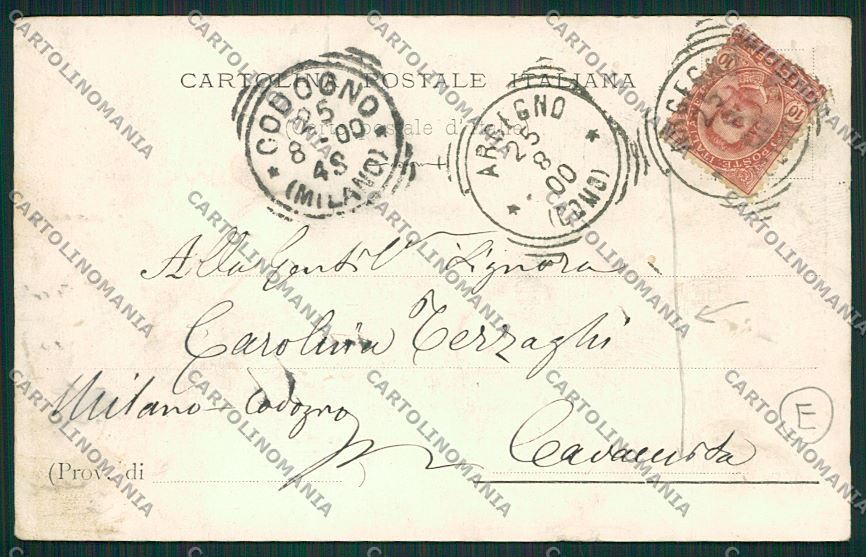 CARTOLINA POSTALE ITALIANA
(Carte postale d'Italie)
CODOGNO
25
8-00
4S
(MILANO)
ARGEGNO
25
8
00
(COMO)
ARGEGNO
POSTE ITALIANE
10
10
Alla Gentil Signora
Carolina Terzaghi
Milano Codogno
(Prov. di
E
CARTOLINOMANIA